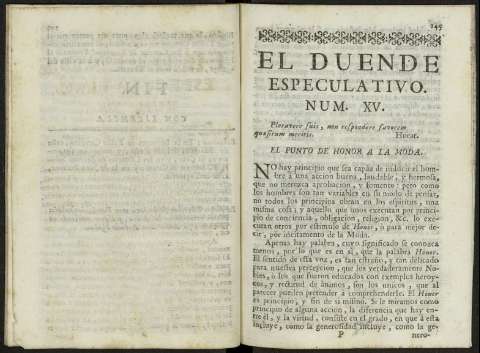 145
EL DUENDE
ESPECULATIVO.
NUM. XV.
Ploravere suis, non respondere favorem
quæsitum meritis. Horat.
EL PUNTO DE HONOR A LA MODA.
NO hay principio que sea capáz de inducir al hom-
bre à una accion buena, laudable, y hermosa,
que no merezca aprobacion, y fomento: pero como
los hombres son tan variables en su modo de pensar,
no todos los principios obran en los espiritus, una
misma cosa; y aquello que unos executan por princi-
pio de conciencia, obligacion, religion, &c. lo exe-
cutan otros por estimulo de Honor, ò para mejor de-
cir, por incitamento de la Moda.
Apenas hay palabra, cuyo significado se conozca
menos, por lo que es en sì, que la palabra Honor.
El sentido de esta voz, es tan estraño, y tan delicado
para nuestra percepcion, que los verdaderamente No-
bles, ò los que fueron educados con exemplos heroy-
cos, y rectitud de animos, son los unicos, que al
parecer pueden pretender à comprehenderle. El Honor
es principio, y fin de sì mismo. Si le miramos como
principio de alguna accion, la diferencia que hay en-
tre él, y la virtud, consiste en el grado, en que à esta
incluye, como la generosidad incluye, como la ge-
P nero-